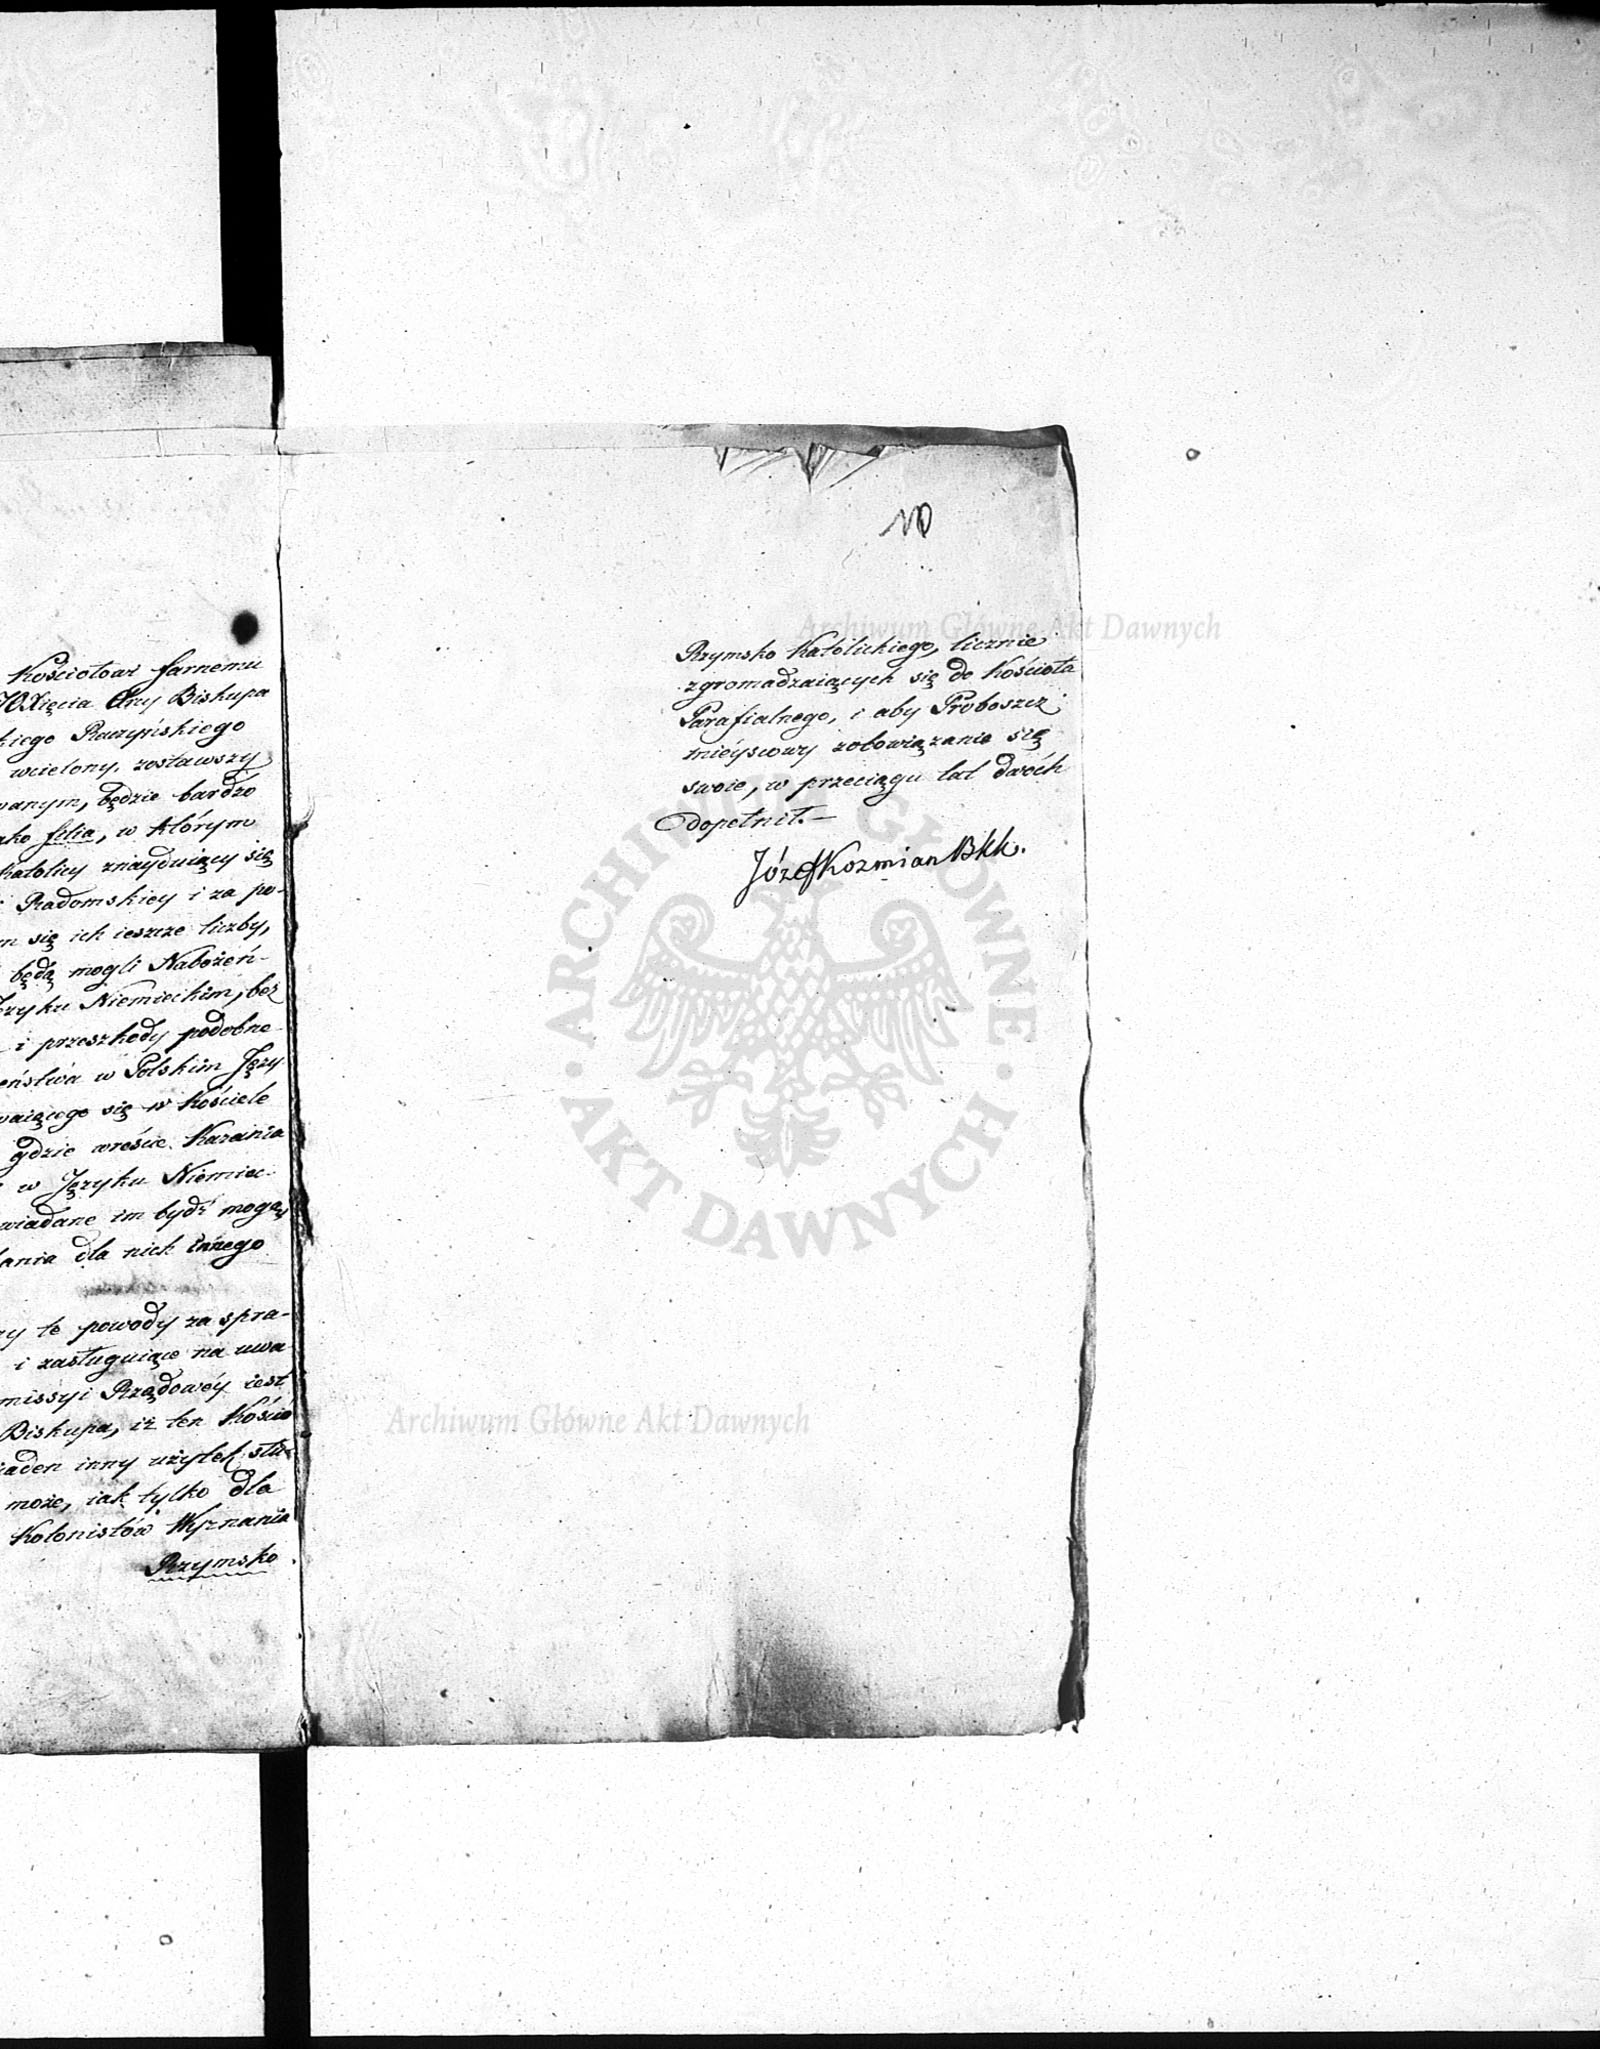 Kościołowi farnemu
JOXięcia Arcy Biskupa
kiego Raczyńskiego
wcielony, zostawszy
wanym, będzie bardzo
ako filia, w którym
Katolicy znayduiący się
Radomskiey i za po-
m się ich ieszcze liczby,
będą mogli Nabożeń-
ęzyku Niemieckim, bez
i przeszkody podobne
eństwa w Polskim Języ
waiącego się w Kościele
gdzie wreście Kazania
w Języku Niemiec-
wiadane im bydź mogą,
ania dla nich innego
ry te powody za spra-
i zasługuiące na uwa
missyi Rządowéy iest
Biskupa, iż ten Kośció
żaden inny użytek słu-
może, iak tylko dla
Kolonistów Wyznania
Rzymsko
10
Rzymsko Katolickiego, licznie
zgromadzaiących się do Kościoła
Parafialnego, i aby Proboszcz
mieyscowy zobowiązanie się
swoie, w przeciągu lat dwóch
dopełnił.—
Józef Kozmian BKk.
Archiwum Główne Akt Dawnych
ARCHIWUM GŁÓWNE
· AKT DAWNYCH ·
Archiwum Główne Akt Dawnych